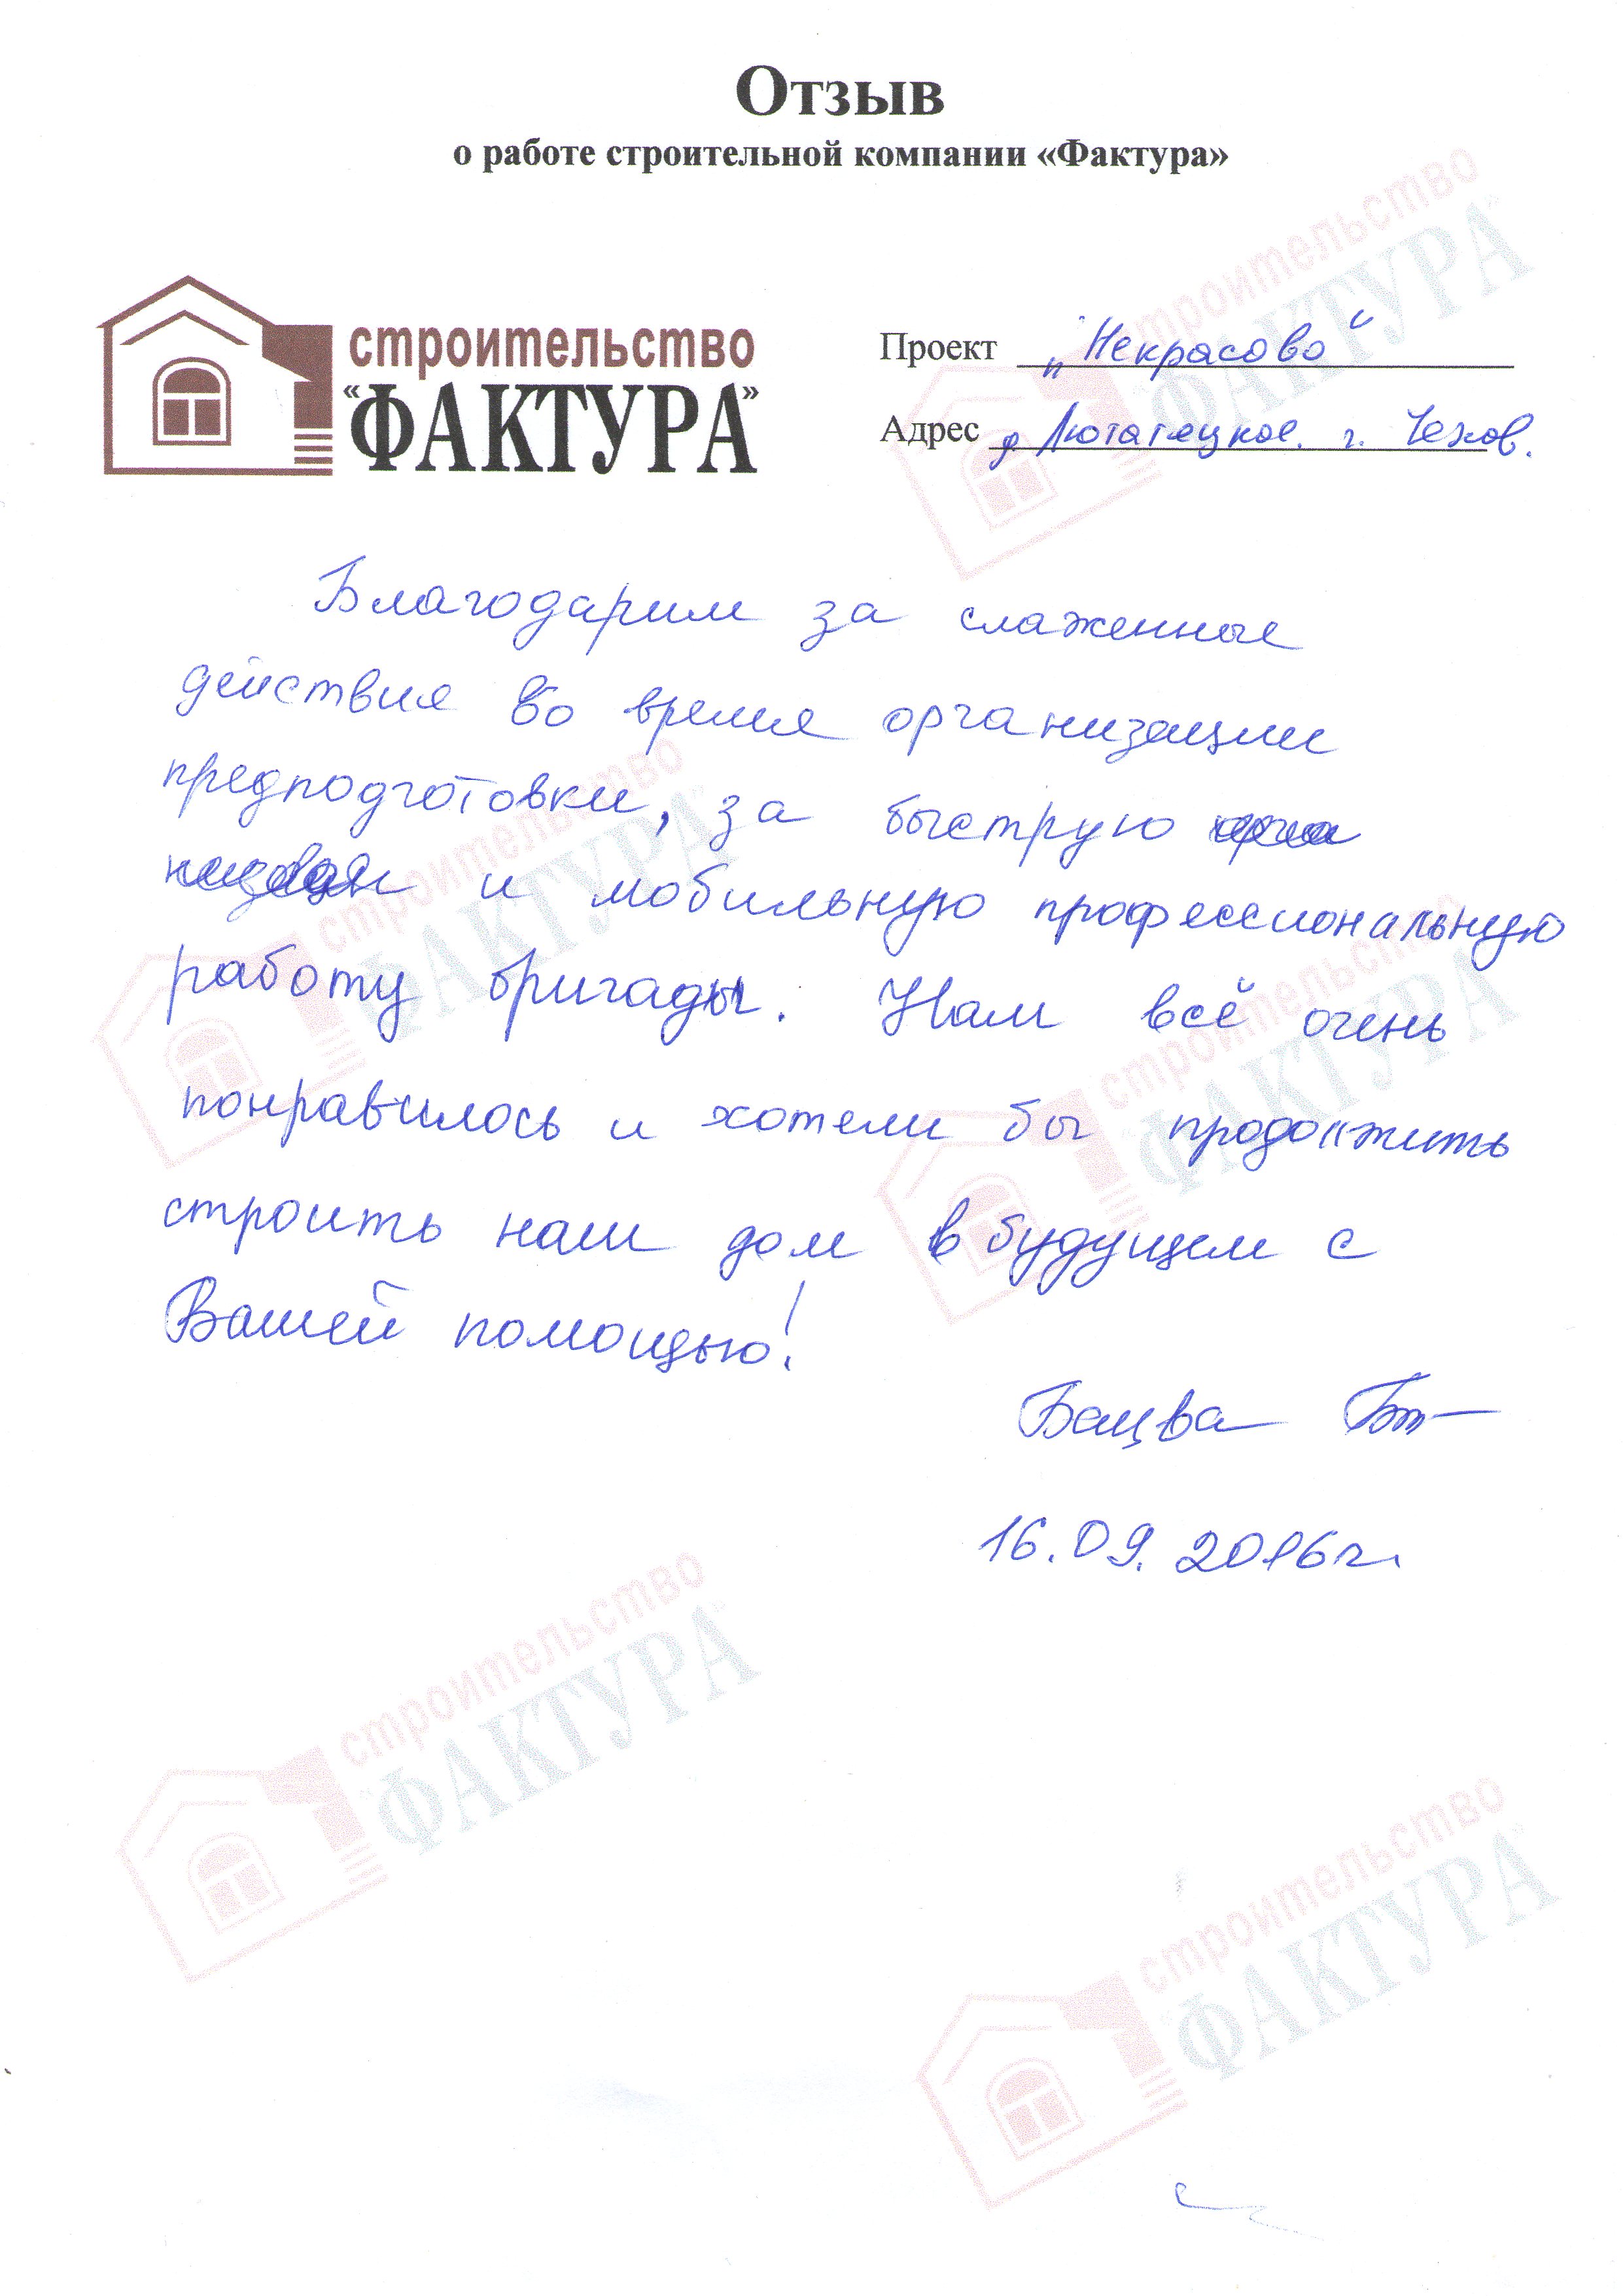 Отзыв
о работе строительной компании «Фактура»
строительство
"ФАКТУРА"
Проект "Некрасово"
Адрес д. г. Чехов.
Благодарим за слаженные
действия во время организации
предподготовки, за быструю
и мобильную профессиональную
работу бригады. Нам всё очень
понравилось и хотели бы продолжить
строить наш дом в будущем с
Вашей помощью!
Бацва
16.09.2016г.
строительство
"ФАКТУРА"
строительство
"ФАКТУРА"
строительство
"ФАКТУРА"
строительство
"ФАКТУРА"
строительство
"ФАКТУРА"